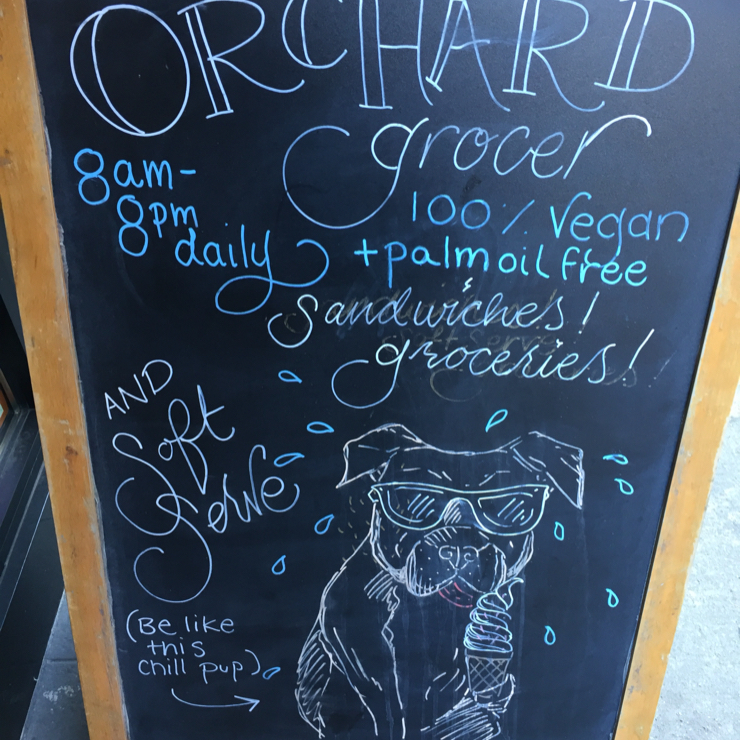 ORCHARD
grocer
8am-
8pm
daily
100% Vegan
+palm oil free
Sandwiches!
groceries!
AND
Soft
Serve
(Be like
this
chill pup)